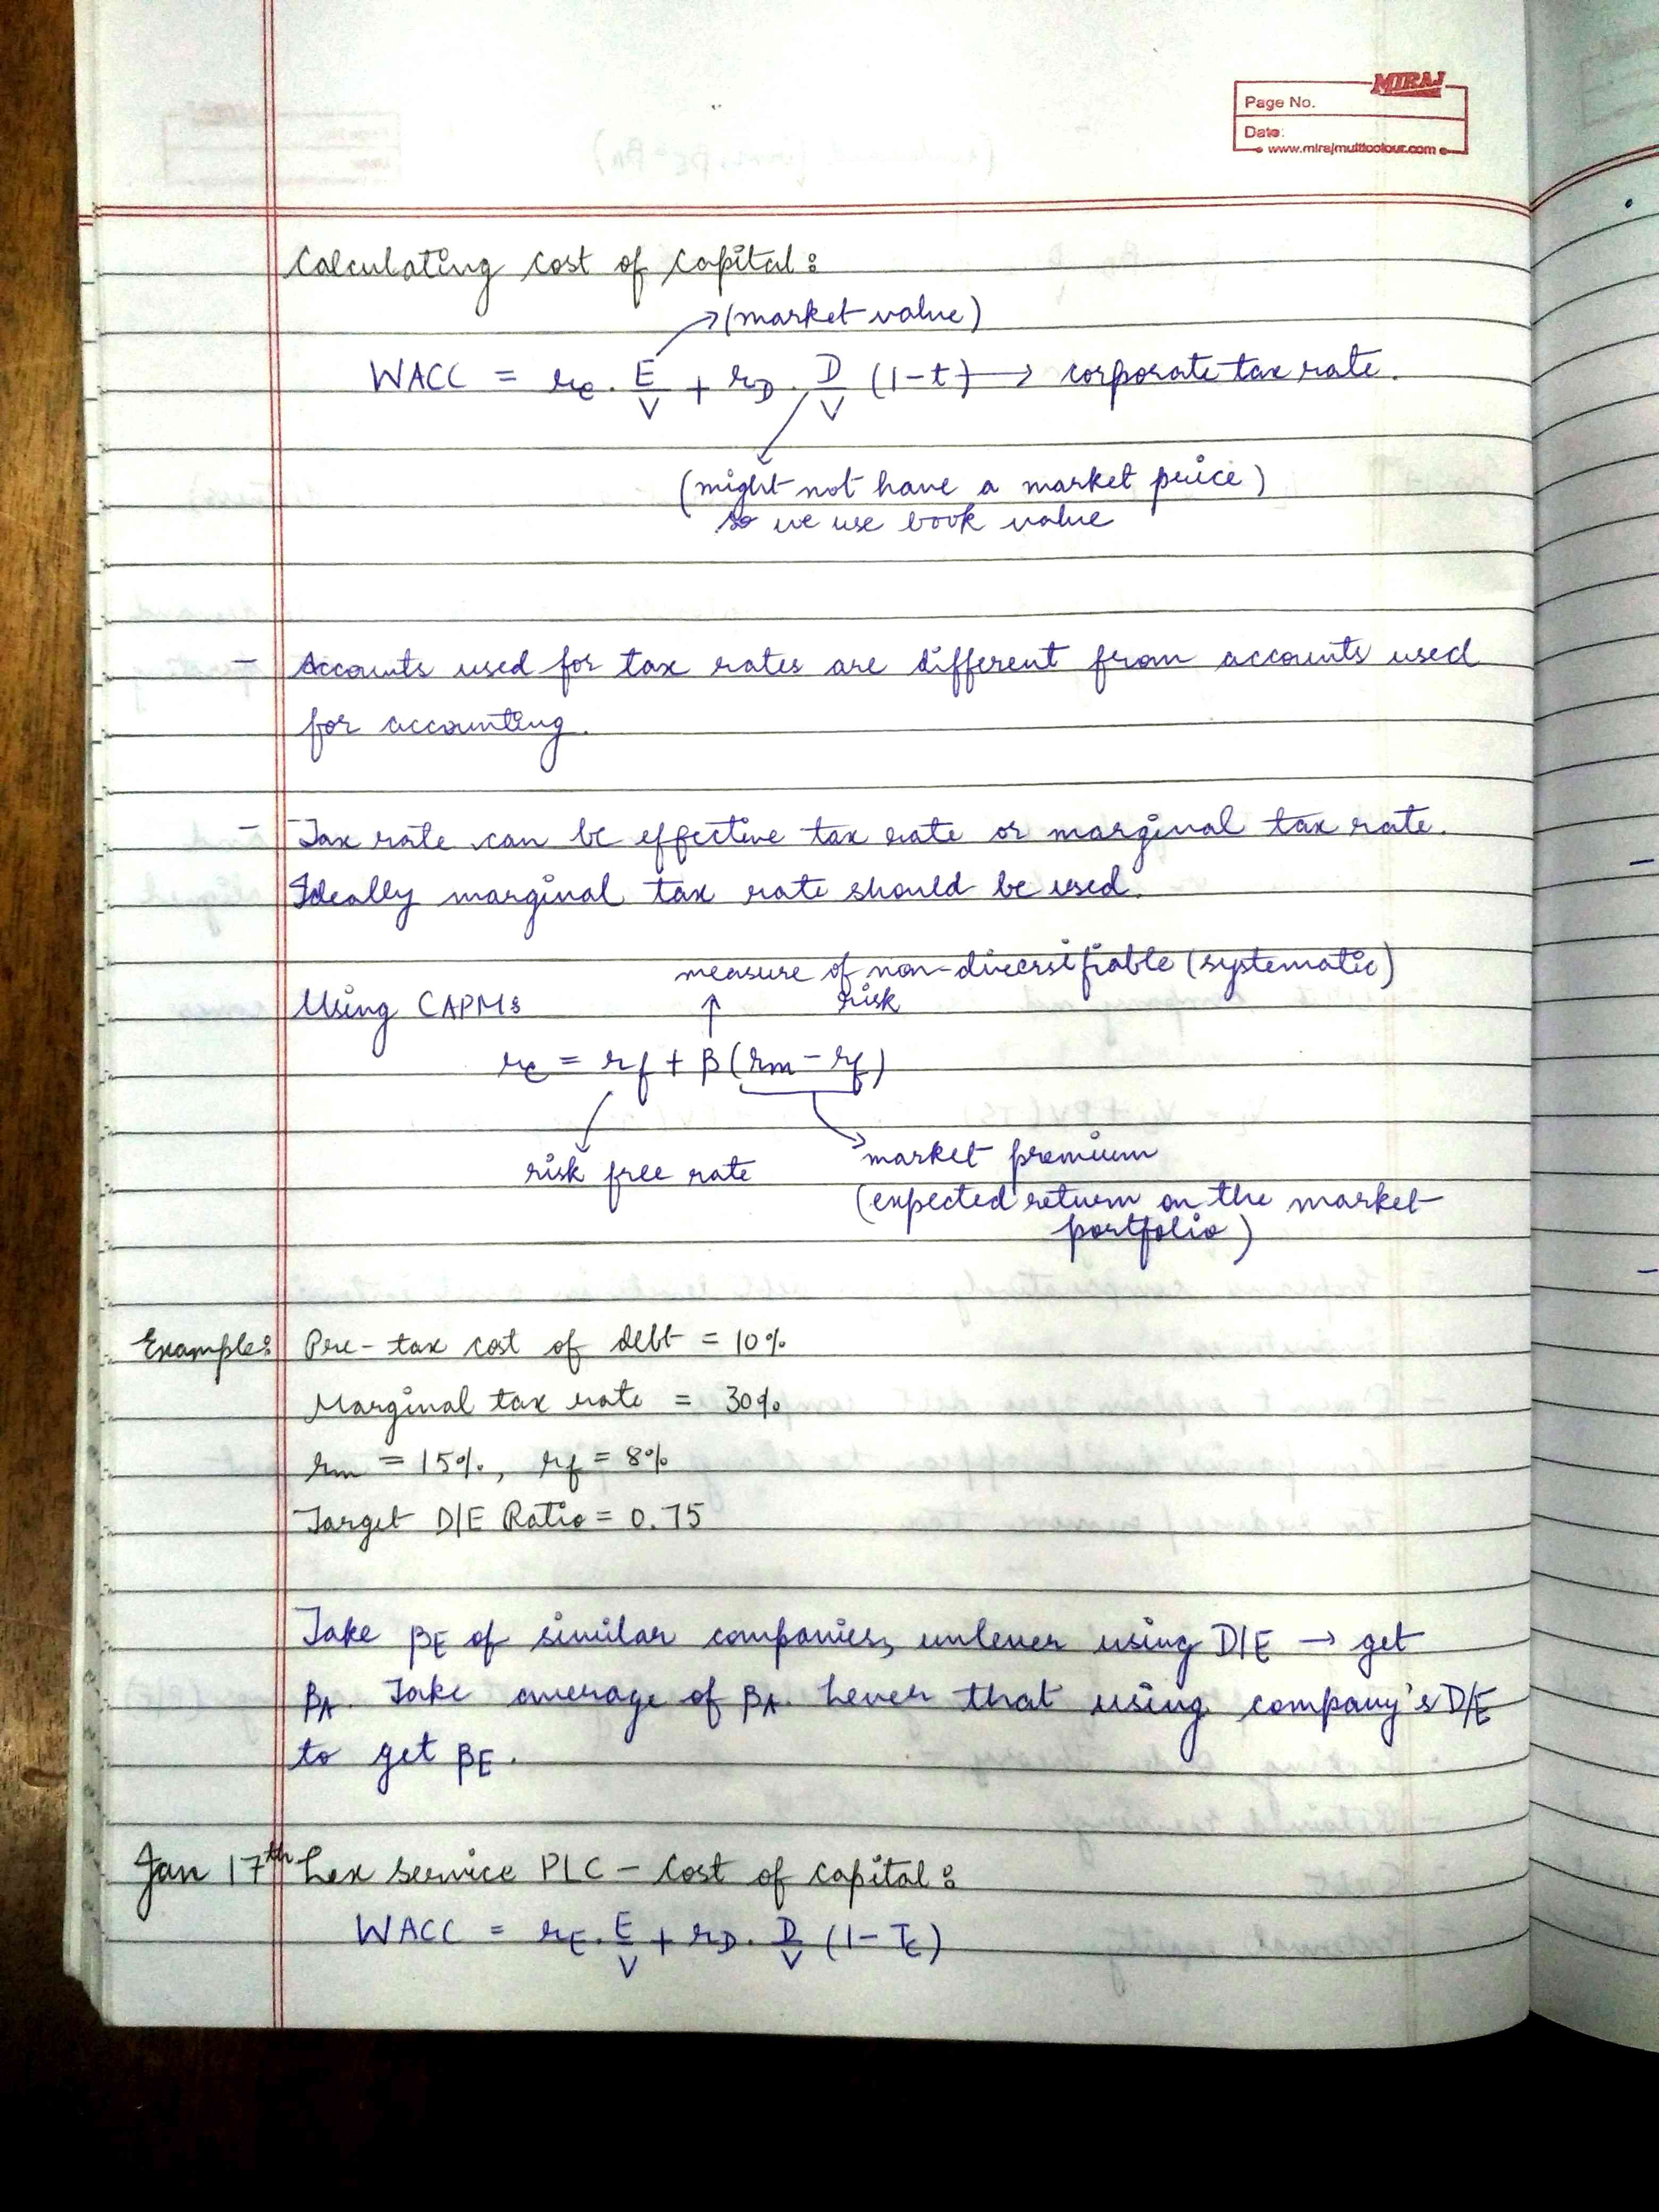 MIRAJ
Page No.
Date:
www.mirajmulticolour.com
Calculating cost of capital:
(market value)
WACC = re . E/V + rD . D/V (1-t) → corporate tax rate.
(might not have a market price)
so we use book value
- Accounts used for tax rates are different from accounts used
for accounting.
- Tax rate can be effective tax rate or marginal tax rate.
Ideally marginal tax rate should be used.
measure of non-diversifiable (systematic)
risk
Using CAPM:
re = rf + β (rm - rf)
risk free rate
market premium
(expected return on the market
portfolio)
Example: Pre-tax cost of debt = 10%
Marginal tax rate = 30%
rm = 15%, rf = 8%
Target D/E Ratio = 0.75
Take βE of similar companies, unlever using D/E → get
βA. Take average of βA. Lever that using company's D/E
to get βE.
Jan 17th Lex Service PLC - Cost of capital:
WACC = rE . E/V + rD . D/V (1- Tc)